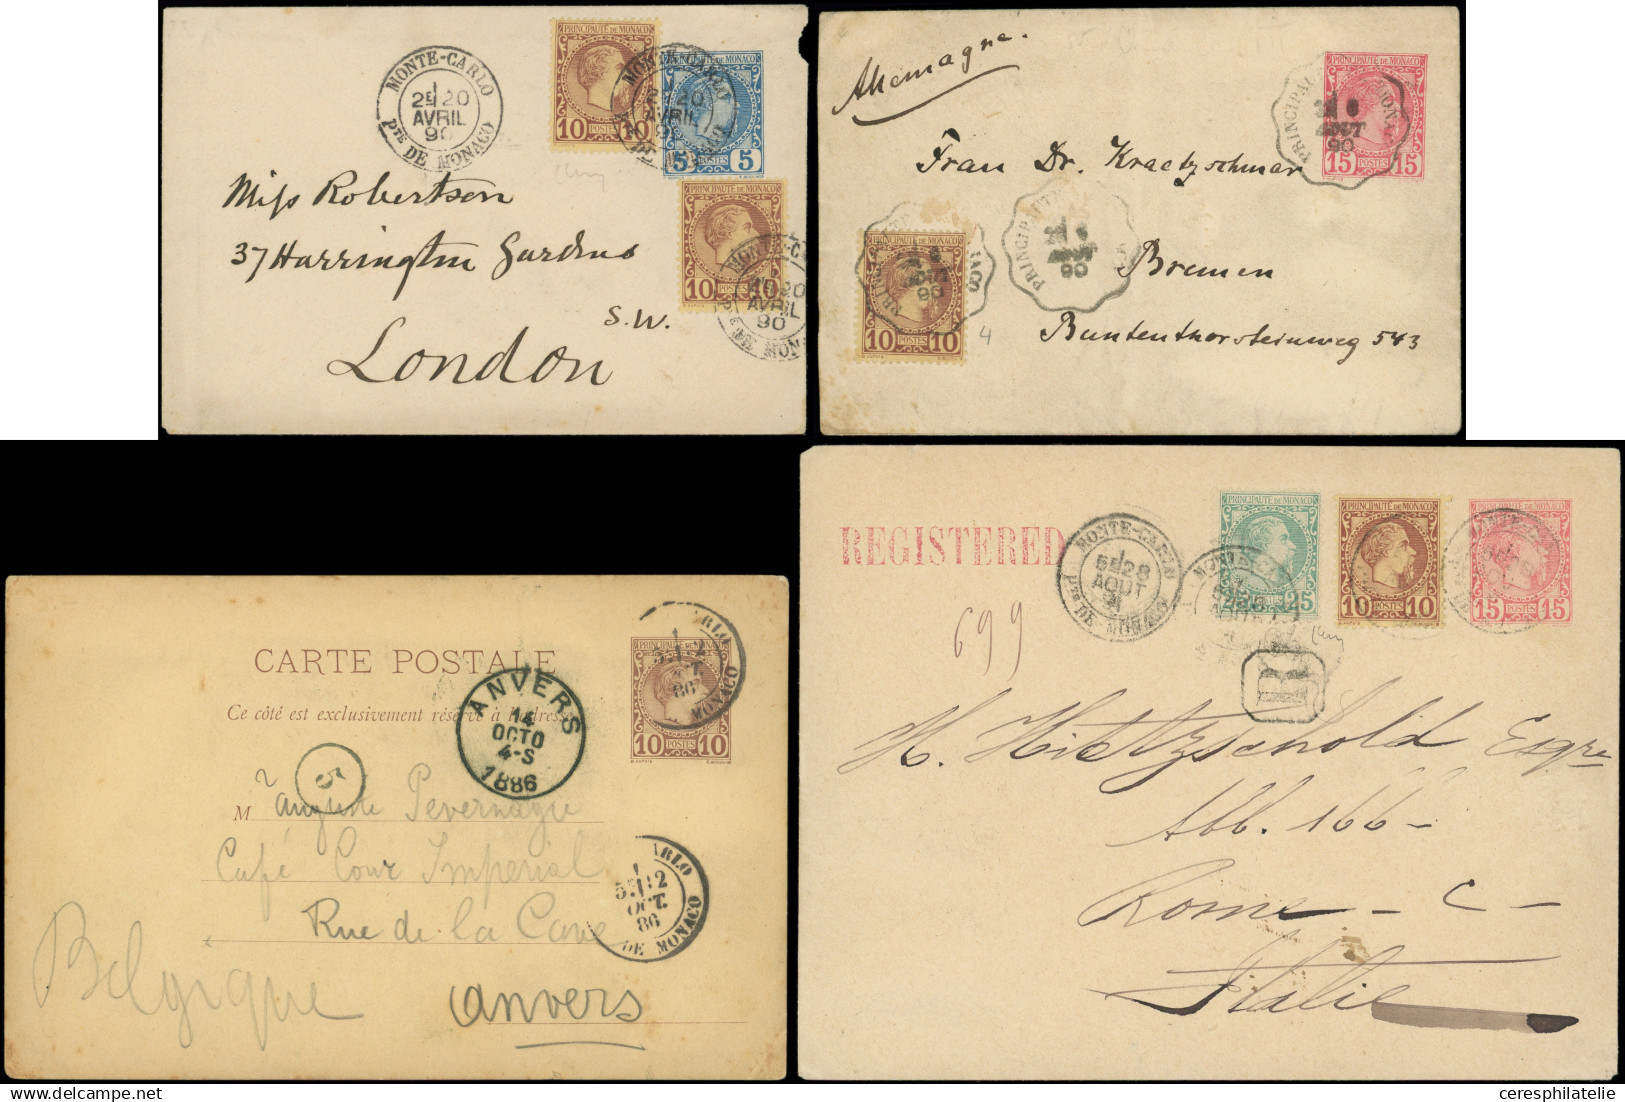 MONTE-CARLO
2E 20
AVRIL
90
PTE DE MONACO
PRINCIPAUTÉ DE MONACO
10 POSTES 10
5 POSTES 5
PRINCIPAUTÉ DE MONACO
10 10
AVRIL
90
Miss Robertson
37 Harrington Gardens
S.W.
London
Allemagne.
PRINCIPAUTÉ DE MONACO
15 POSTES 15
AOUT
90
Frau Dr. Kraetzschmar
PRINCIPAUTÉ DE MONACO
10 POSTES 10
PRINCIPAUTÉ
90
Bremen
4
Buntenthorsteinweg 543
CARTE POSTALE
Ce côté est exclusivement réservé à l'adresse
PRINCIPAUTÉ DE MONACO
10 POSTES 10
OCT.
86
MONACO
ANVERS
14
OCTO
4-S
1886
5
M r Auguste Pevernagie
Café Cour Impérial
Rue de la Cave
Belgique
Anvers
12
OCT.
86
DE MONACO
REGISTERED
699
MONTE-CARLO
5E 28
AOUT
91
PTE DE MONACO
PRINCIPAUTÉ DE MONACO
25 25
PRINCIPAUTÉ DE MONACO
10 POSTES 10
PRINCIPAUTÉ DE MONACO
15 POSTES 15
R
H. Hietzschold Esqre
Abb. 166-
Rome - c -
Italie
ceresphilatelie